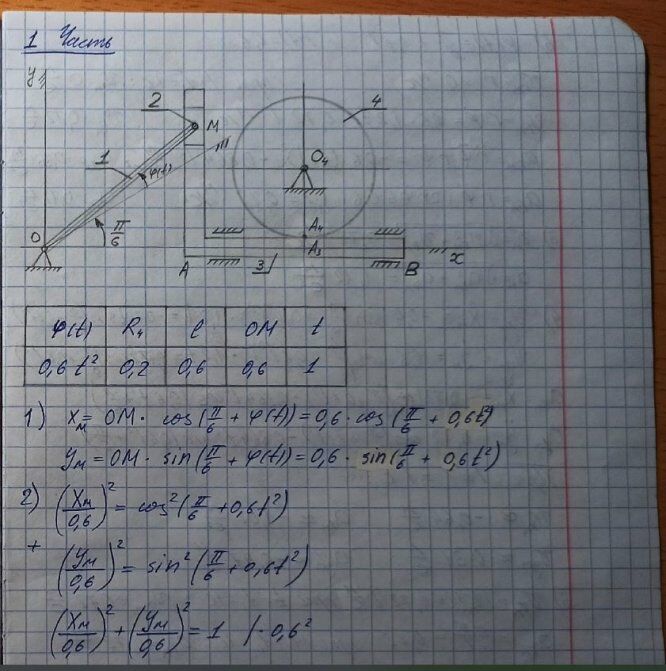 1 Часть
y
2
M
4
1
φ(t)
O₄
O
π/6
A₄
A₃
x
A
3
B
φ(t) R₄ ℓ OM t
0,6 t² 0,2 0,6 0,6 1
1) Xм = OM · cos(π/6 + φ(t)) = 0,6 · cos(π/6 + 0,6t²)
Yм = OM · sin(π/6 + φ(t)) = 0,6 · sin(π/6 + 0,6t²)
2) (Xм/0,6)² = cos²(π/6 + 0,6t²)
+
(Yм/0,6)² = sin²(π/6 + 0,6t²)
(Xм/0,6)² + (Yм/0,6)² = 1 /· 0,6²